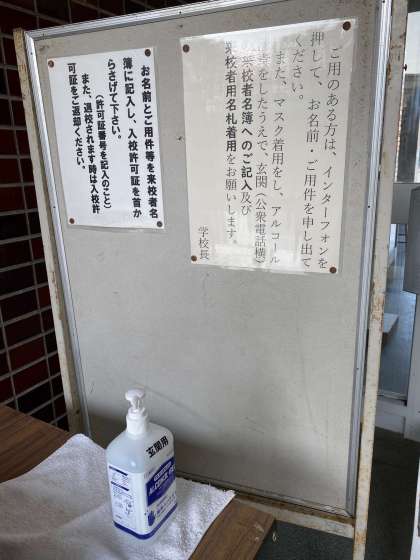 ご用のある方は、インターフォンを
押して、お名前・ご用件を申し出て
ください。
また、マスク着用をし、アルコール
をしたうえで、玄関（公衆電話横）
来校者名簿へのご記入及び
来校者用名札着用をお願いします。
学校長
お名前とご用件等を来校者名
簿に記入し、入校許可証を首か
らさげて下さい。
（許可証番号を記入のこと）
また、退校されます時は入校許
可証をご返却ください。
玄関用
ALCOHOL